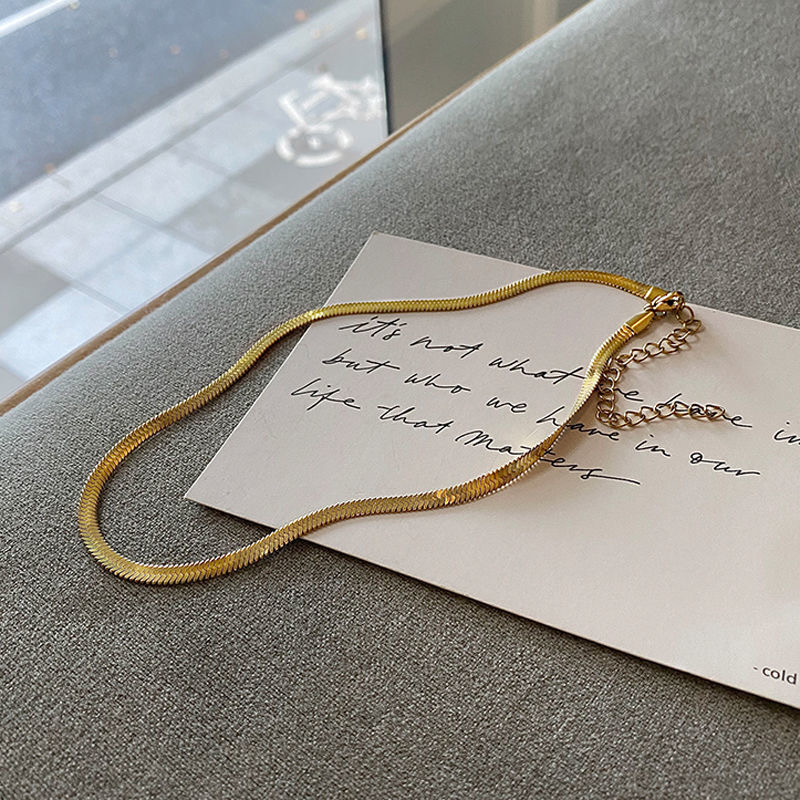 it's not what we have in
but who we have in our
life that matters
- cold